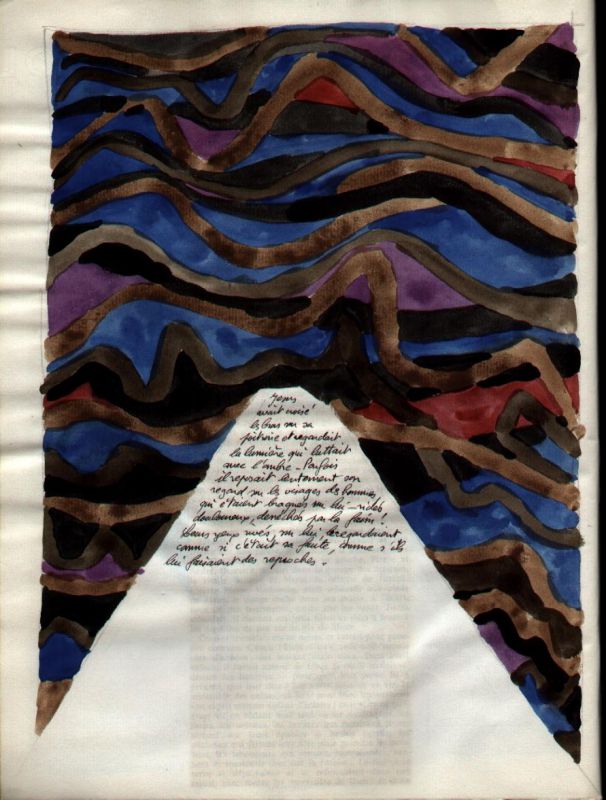 Jésus
avait croisé
les bras sur sa
poitrine et regardait
la lumière qui luttait
avec l'ombre. Parfois
il reposait lentement son
regard sur les visages des hommes
qui étaient braqués sur lui – ridés
douloureux, desséchés par la faim.
Leurs yeux rivés sur lui le regardaient
comme si c'était sa faute, comme s'ils
lui faisaient des reproches.